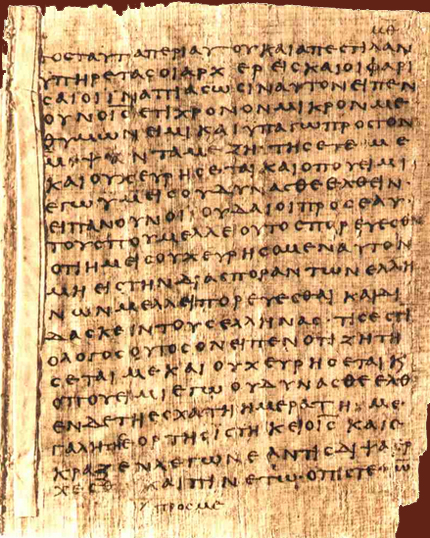 ΤΟϹΤΑΥΤΑΠΕΡΙΑΥΤΟΥΚΑΙΑΠΕϹΤΙΛΑΝ
ΥΠΗΡΕΤΑϹΟΙΑΡΧΕΡΕΙϹΚΑΙΟΙΦΑΡΙ
ϹΑΙΟΙΙΝΑΠΙΑϹΩϹΙΝΑΥΤΟΝΕΙΠΕΝ
ΟΥΝΟΙ̅Ϲ̅ΕΤΙΧΡΟΝΟΝΜΙΚΡΟΝΜΕ
ΘΥΜΩΝΕΙΜΙΚΑΙΥΠΑΓΩΠΡΟϹΤΟΝ
ΝΤΑΜΕΖΗΤΗϹΕΤΕΜΕ
ΚΑΙΟΥΧΕΥΡΗϹΕΤΑΙΚΑΙΟΠΟΥΕΙΜΙ
ΕΓΩΥΜΕΙϹΟΥΔΥΝΑϹΘΕΕΛΘΕΙΝ·
ΕΙΠΑΝΟΥΝΟΙΙΟΥΔΑΙΟΙΠΡΟϹΕΑΥ
ΤΟΥϹΠΟΥΜΕΛΛΕΙΟΥΤΟϹΠΟΡΕΥΕϹΘΑΙ
ΟΤΙΗΜΕΙϹΟΥΧΕΥΡΗϹΟΜΕΝΑΥΤΟΝ
ΜΗΕΙϹΤΗΝΔΙΑϹΠΟΡΑΝΤΩΝΕΛΛΗ
ΝΩΝΜΕΛΛΕΙΠΟΡΕΥΕϹΘΑΙΚΑΙΔΙ
ΔΑϹΚΕΙΝΤΟΥϹΕΛΛΗΝΑϹ·ΤΙϹΕϹΤΙ
ΟΛΟΓΟϹΟΥΤΟϹΟΝΕΙΠΕΝΟΤΙΖΗΤΗ
ϹΕΤΑΙΜΕΚΑΙΟΥΧΕΥΡΗϹΕΤΑΙΚ
ΟΠΟΥΕΙΜΙΕΓΩΟΥΔΥΝΑϹΘΕΕΛΘ
ΕΝΔΕΤΗΕϹΧΑΤΗΗΜΕΡΑΤΗΜΕ
ΓΑΛΗΤΗϹΕΟΡΤΗϹΙϹΤΗΚΕΙΟΙ̅Ϲ̅ΚΑΙΕ
ΚΡΑΖΕΝΛΕΓΩΝΕΑΝΤΙϹΔΙΨΑΕΡ
ΧΕϹΘΩΚΑΙΠΙΝΕΤΩ·ΟΠΙϹΤΕΥΩ
ΠΡΟϹΜΕ